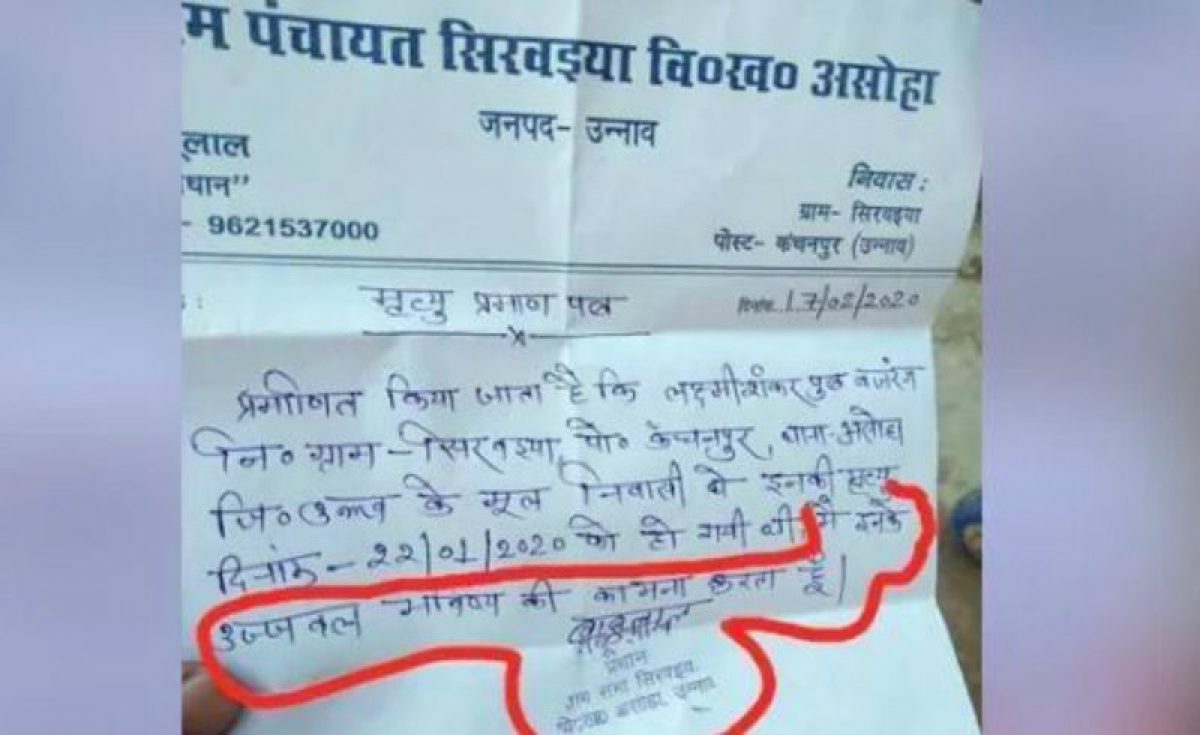 म पंचायत सिरवइया वि०ख० असोहा
जनपद- उन्नाव
ूलाल
धान"
- 9621537000
निवास :
ग्राम- सिरवइया
पोस्ट- कंचनपुर (उन्नाव)
:
मृत्यु प्रमाण पत्र
दिनांक. 17/02/2020
प्रमाणित किया जाता है कि लक्ष्मीशंकर पुत्र बजरंग
नि० ग्राम - सिरवइया, पो० कंचनपुर, थाना- असोहा
जि० उन्नाव के मूल निवासी थे इनकी मृत्यु
दिनांक - 22/01/2020 को हो गयी थी मैं इनके
उज्जवल भविष्य की कामना करता हूँ।
बाबूलाल
प्रधान
ग्राम सभा सिरवइया
वि०ख० असोहा, उन्नाव